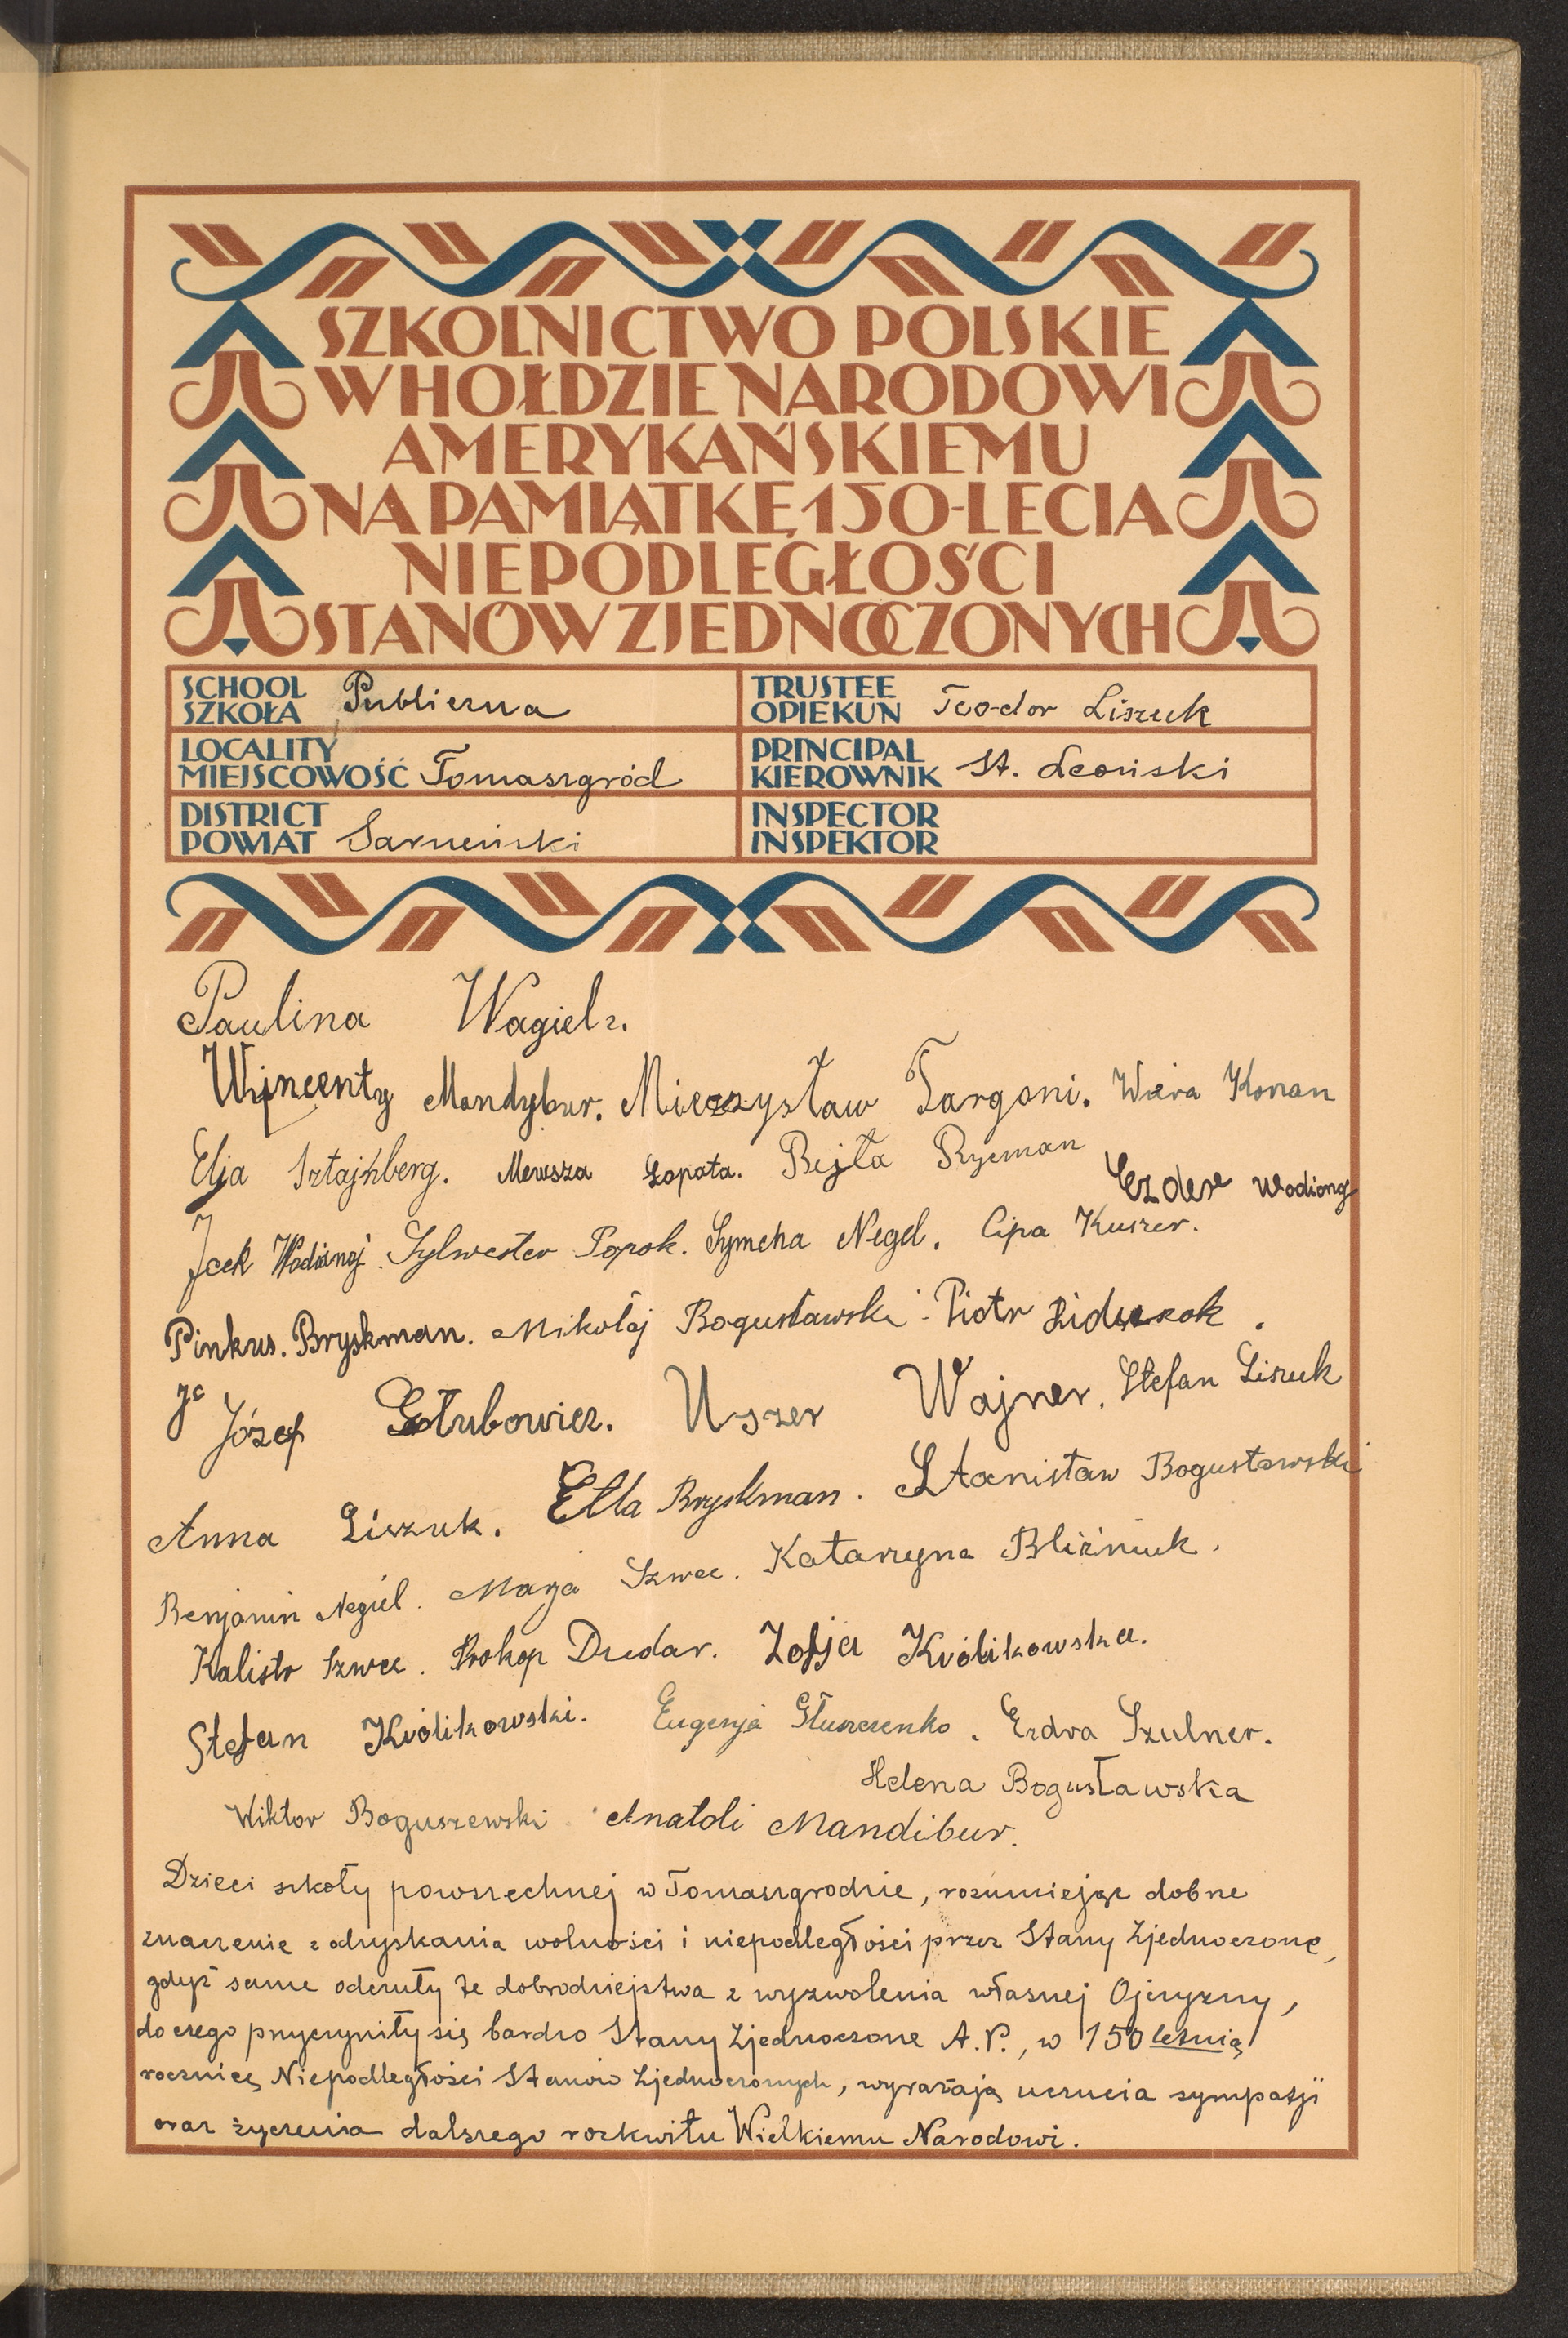 SZKOLNICTWO POLSKIE
W HOŁDZIE NARODOWI
AMERYKAŃSKIEMU
NA PAMIĄTKĘ 150-LECIA
NIEPODLEGŁOŚCI
STANÓW ZJEDNOCZONYCH
SCHOOL
SZKOŁA Publiczna
TRUSTEE
OPIEKUN Teodor Liszuk
LOCALITY
MIEJSCOWOŚĆ Tomaszgród
PRINCIPAL
KIEROWNIK St. Leoński
DISTRICT
POWIAT Sarneński
INSPECTOR
INSPEKTOR
Paulina Wagielz.
Wincenty Mandybur. Mieczysław Targoni. Wiera Konan
Elja Sztajnberg. Mewsza Łopata. Bejła Rycman
Ezder Wodionj
Jcek Wodianoj. Sylwester Popok. Symcha Negel. Cipa Kuszer.
Pinkus. Bryskman. Mikołaj Bogusławski. Piotr
Józef Gołubowicz. Uszer Wajner. Stefan Liszuk
Anna Liszuk. Etla Bryskman. Stanisław Bogusławski
Benjamin Negiel. Marja Szwec. Katarzyna Bliźniuk.
Kalistr Szwec. Prokop Dudar. Zofja Królikowska.
Stefan Królikowski. Eugenja Głuszczenko. Ezdra Szulner.
Helena Bogusławska
Wiktor Boguszewski Anatoli Mandibur.
Dzieci szkoły powszechnej w Tomaszgrodzie, rozumiejąc dobrze
znaczenie z odzyskania wolności i niepodległości przez Stany Zjednoczone,
gdyż same odczuły te dobrodziejstwa z wyzwolenia własnej Ojczyzny,
do czego przyczyniły się bardzo Stany Zjednoczone A.P., w 150 letnią
rocznicę Niepodległości Stanów Zjednoczonych, wyrażają uczucia sympatji
oraz życzenia dalszego rozkwitu Wielkiemu Narodowi.